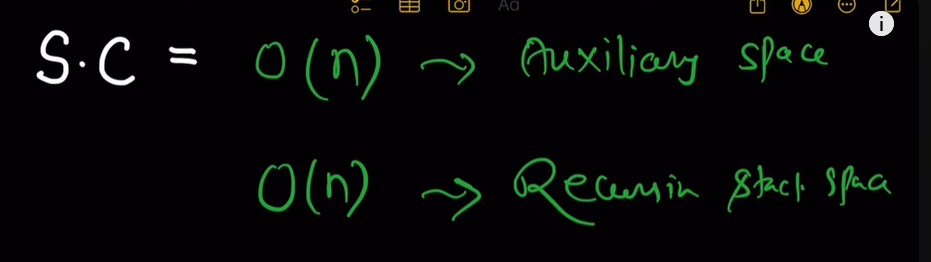 Aa
i
S.C = O(n) → Auxiliary space
O(n) → Recursin stack space